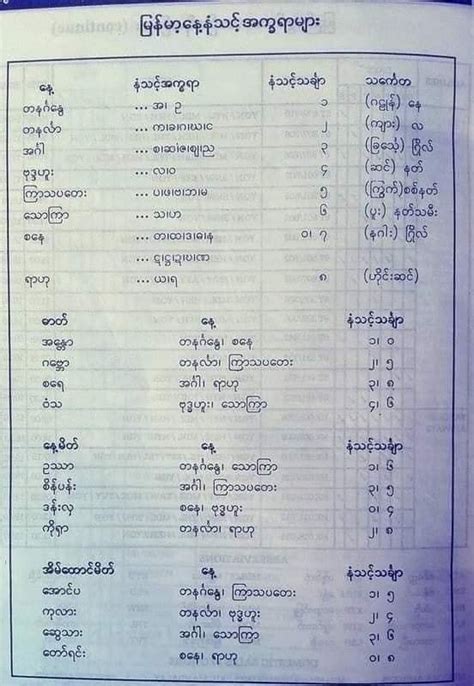 မြန်မာ့နေ့နံသင့်အက္ခရာများ
နေ့ နံသင့်အက္ခရာ နံသင့်သင်္ချာ သင်္ကေတ
တနင်္ဂနွေ ... အ၊ ဥ ၁ (ဂဠုန်) နေ
တနင်္လာ ... က၊ခ၊ဂ၊ဃ၊င ၂ (ကျား) လ
အင်္ဂါ ... စ၊ဆ၊ဇ၊ဈ၊ည ၃ (ခြင်္သေ့) ဂြိုလ်
ဗုဒ္ဓဟူး ... လ၊ဝ ၄ (ဆင်) နတ်
ကြာသပတေး ... ပ၊ဖ၊ဗ၊ဘ၊မ ၅ (ကြွက်)စစ်နတ်
သောကြာ ... သ၊ဟ ၆ (ပူး) နတ်သမီး
စနေ ... တ၊ထ၊ဒ၊ဓ၊န ၀၊ ၇ (နဂါး) ဂြိုလ်
... ဋ၊ဌ၊ဍ၊ဎ၊ဏ
ရာဟု ... ယ၊ရ ၈ (ဟိုင်းဆင်)
ဓာတ် နေ့ နံသင့်သင်္ချာ
အန္တော တနင်္ဂနွေ၊ စနေ ၁၊ ၀
ဂဗ္ဘော တနင်္လာ၊ ကြာသပတေး ၂၊ ၅
စရေ အင်္ဂါ၊ ရာဟု ၃၊ ၈
ဝံသ ဗုဒ္ဓဟူး၊ သောကြာ ၄၊ ၆
နေ့မိတ် နေ့ နံသင့်သင်္ချာ
ဥဿာ တနင်္ဂနွေ၊ သောကြာ ၁၊ ၆
စိန်ပန်း အင်္ဂါ၊ ကြာသပတေး ၃၊ ၅
ဒန်းလှ စနေ၊ ဗုဒ္ဓဟူး ၀၊ ၄
ကိုရှာ တနင်္လာ၊ ရာဟု ၂၊ ၈
အိမ်ထောင်မိတ် နေ့ နံသင့်သင်္ချာ
အောင်ပ တနင်္ဂနွေ၊ ကြာသပတေး ၁၊ ၅
ကုလား တနင်္လာ၊ ဗုဒ္ဓဟူး ၂၊ ၄
ဆွေသား အင်္ဂါ၊ သောကြာ ၃၊ ၆
တော်ရင်း စနေ၊ ရာဟု ၀၊ ၈